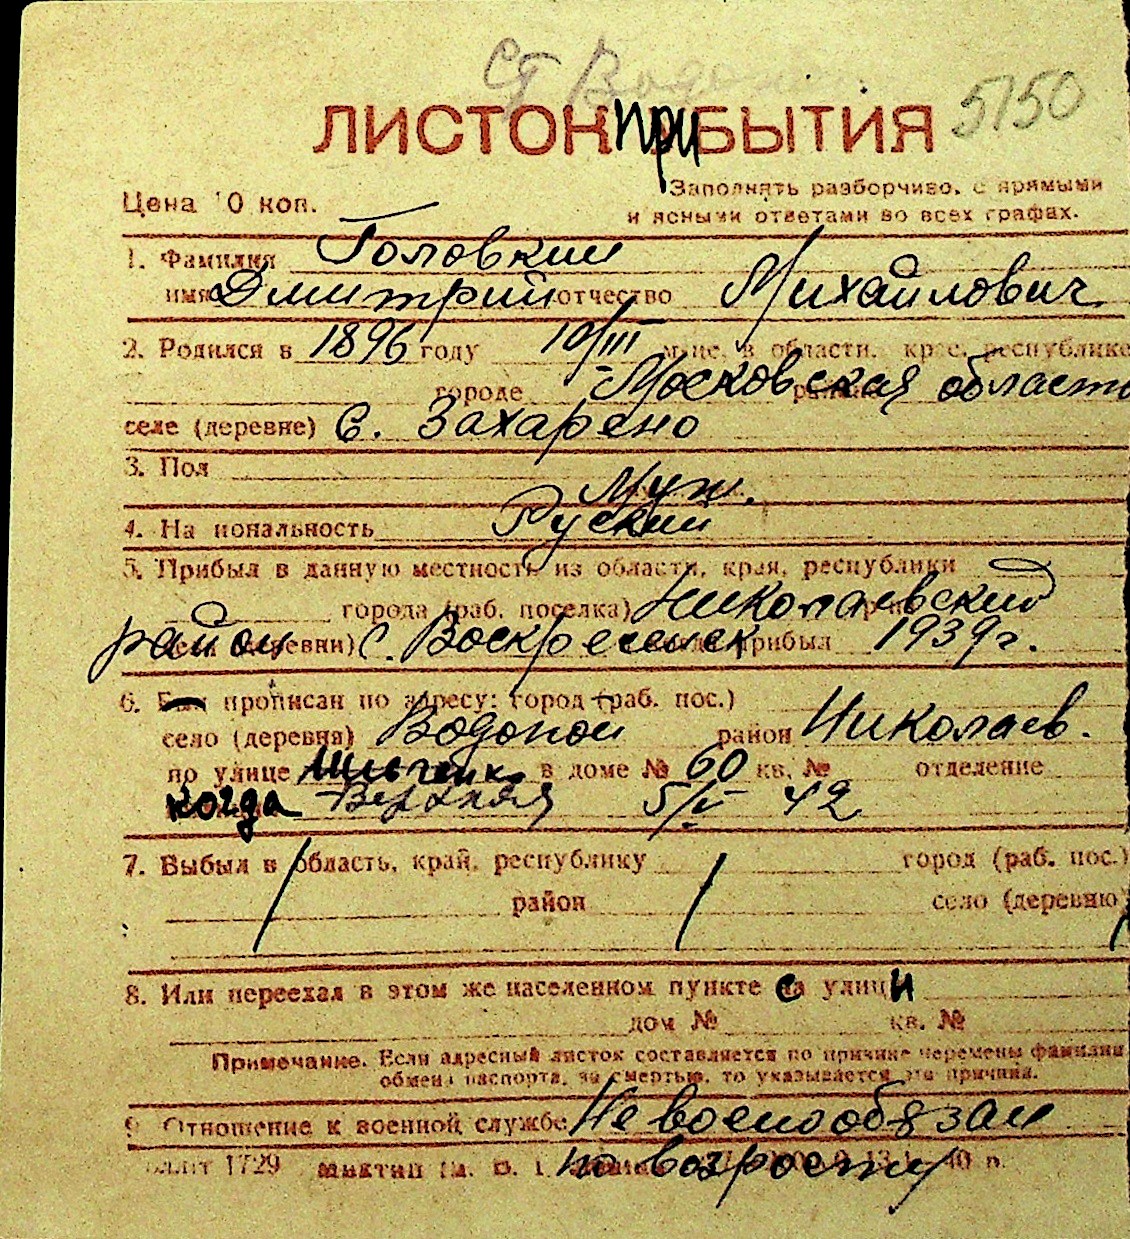 Ст Водопой
5150
ЛИСТОК ПРИБЫТИЯ
Цена 10 коп.
Заполнять разборчиво, с прямыми
и ясными ответами во всех графах.
1. Фамилия Головкин
имя Дмитрий отчество Михайлович
2. Родился в 1896 году 10/III м-це, в области, крае, республике
городе Московская область
селе (деревне) с. Захарено
3. Пол Муж.
4. Национальность Руский
5. Прибыл в данную местность из области, края, республики
города (раб. поселка) Николаевский
район (деревни) с. Воскресенск прибыл 1939 г.
6. прописан по адресу: город (раб. пос.)
село (деревня) Водопой район Николаев.
по улице в доме № 60 кв. № отделение
когда Верхняя 5/V 42
7. Выбыл в область, край, республику город (раб. пос.)
район село (деревню)
8. Или переехал в этом же населенном пункте с улицы
дом № кв. №
Примечание. Если адресный листок составляется по причине перемены фамилии
обмена паспорта, за смертью, то указывается эта причина.
9. Отношение к военной службе Не военообязан
1729 по возросту